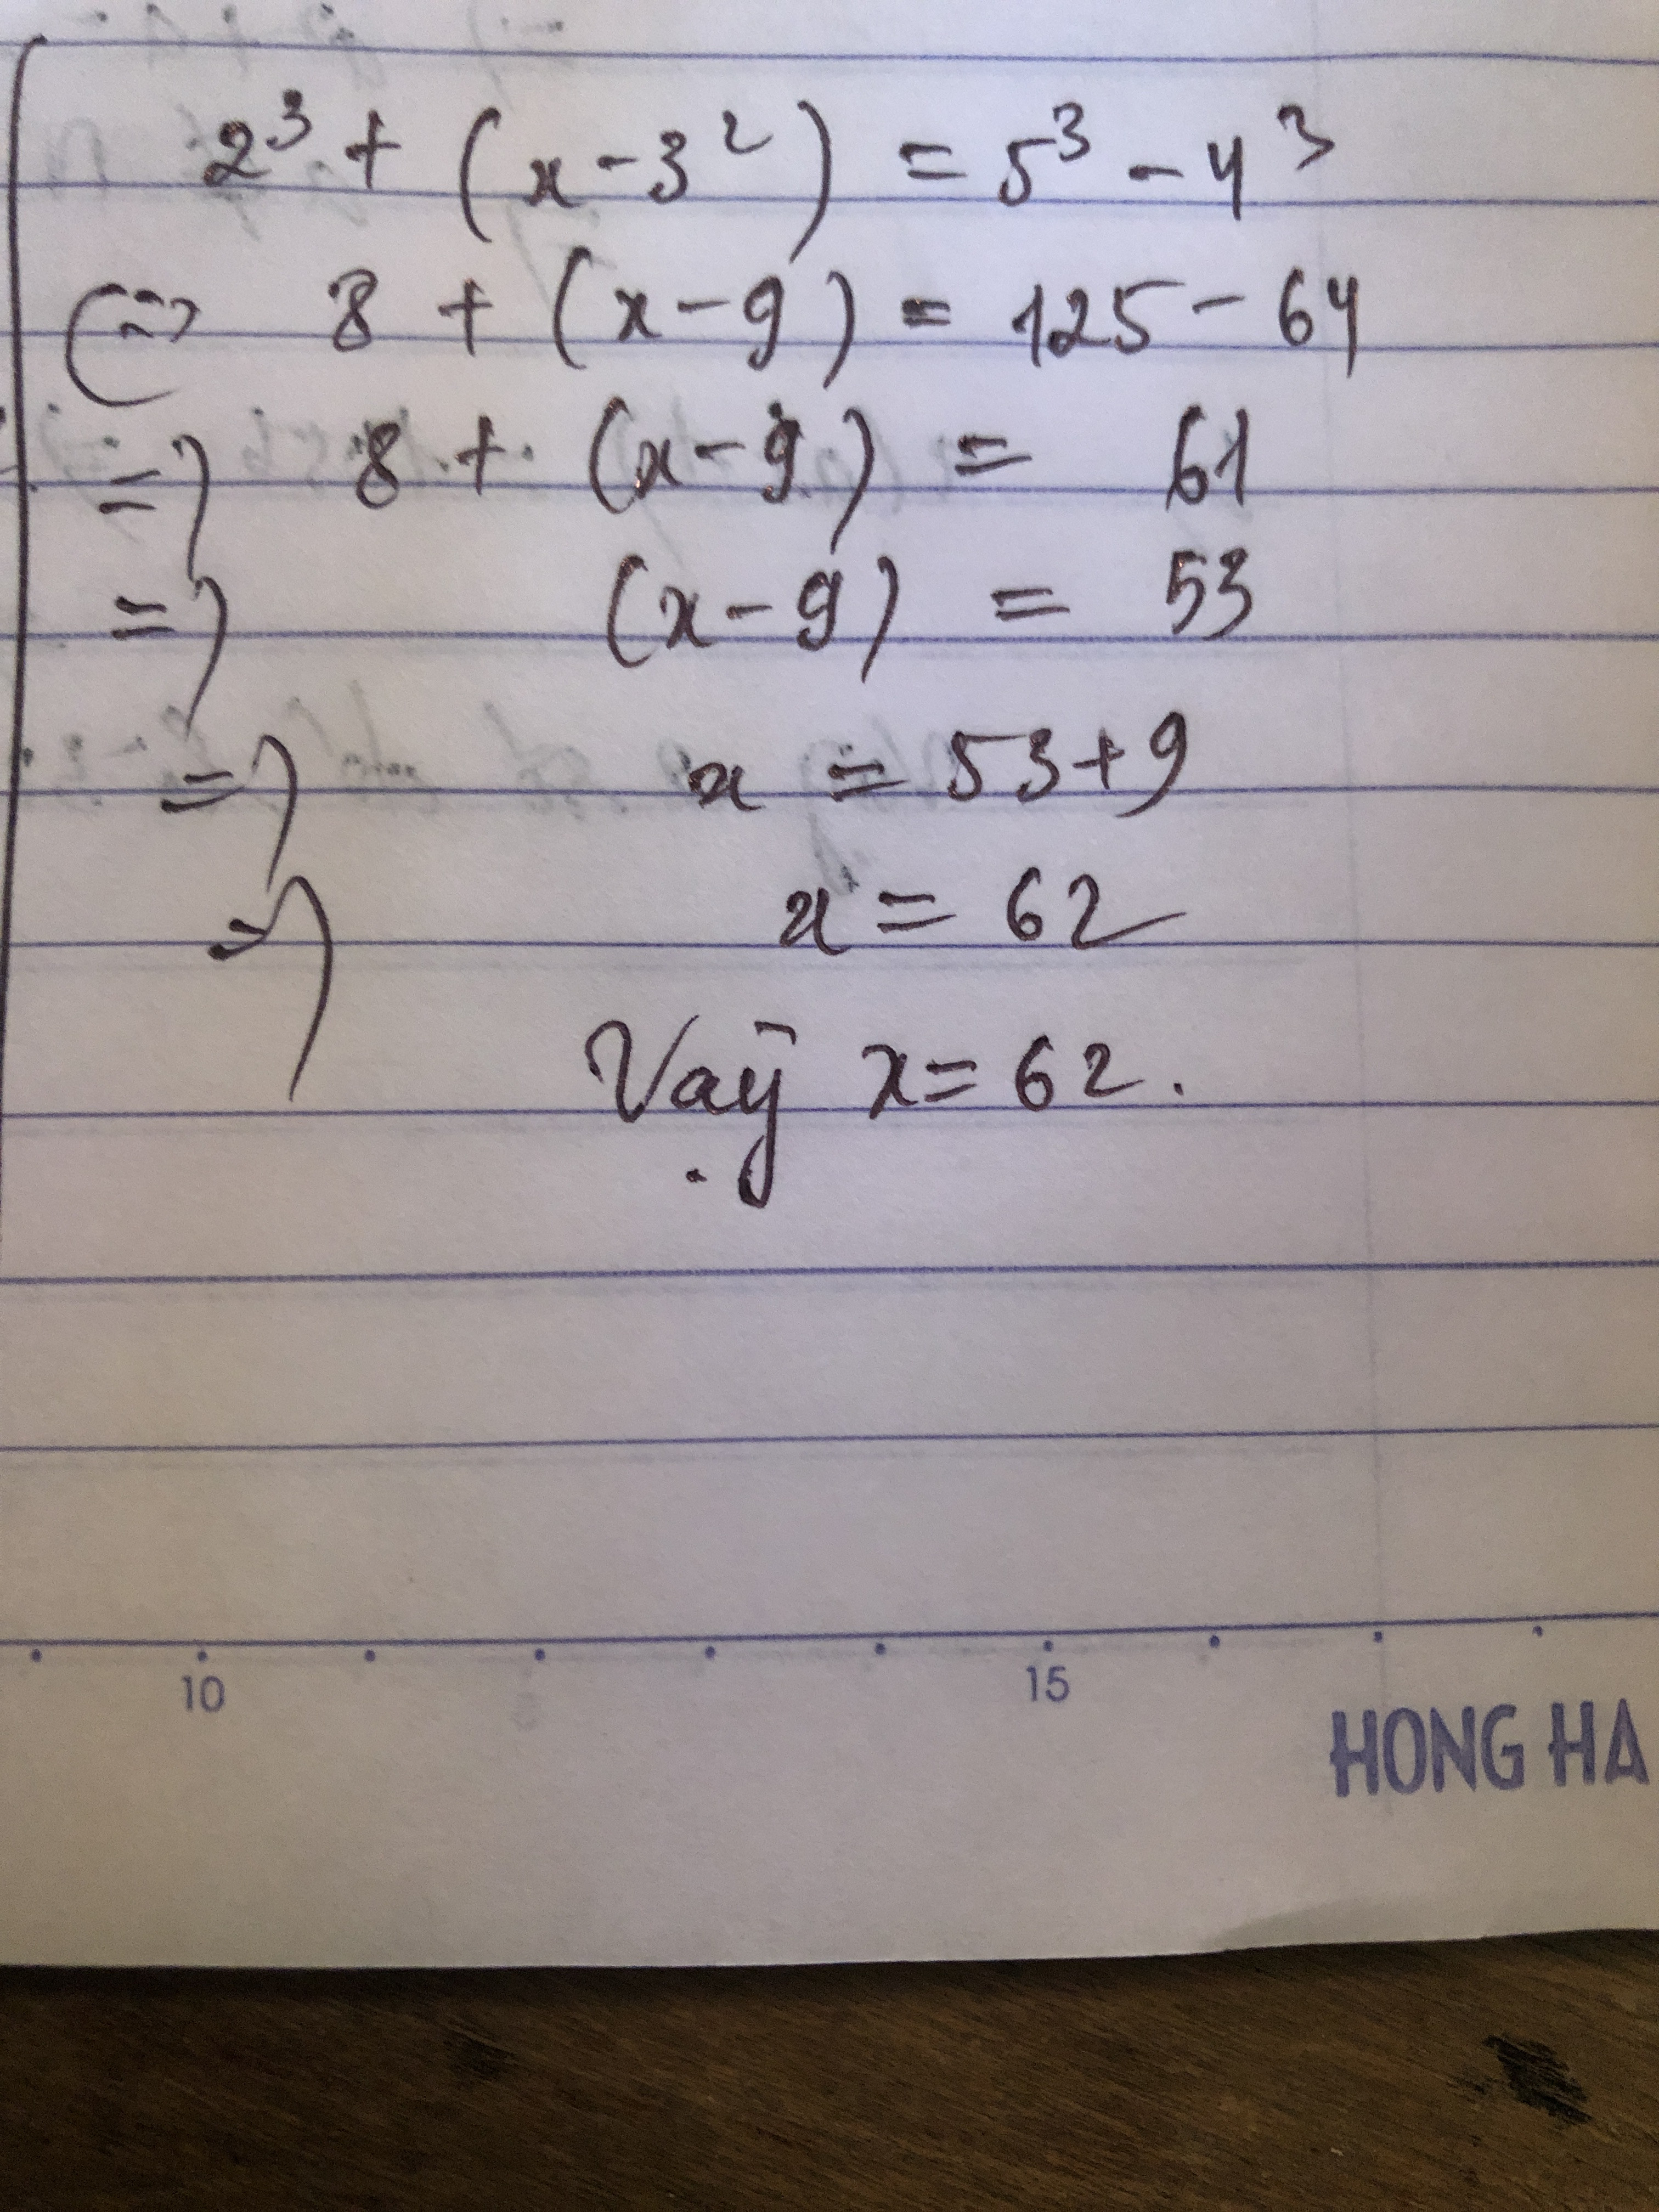 2³ + (x - 3²) = 5³ - 4³
(=> 8 + (x - 9) = 125 - 64
=) 8 + (x - 9) = 61
=) (x - 9) = 53
=) x = 53 + 9
=) x = 62
Vậy x = 62.
10 15
HONG HA